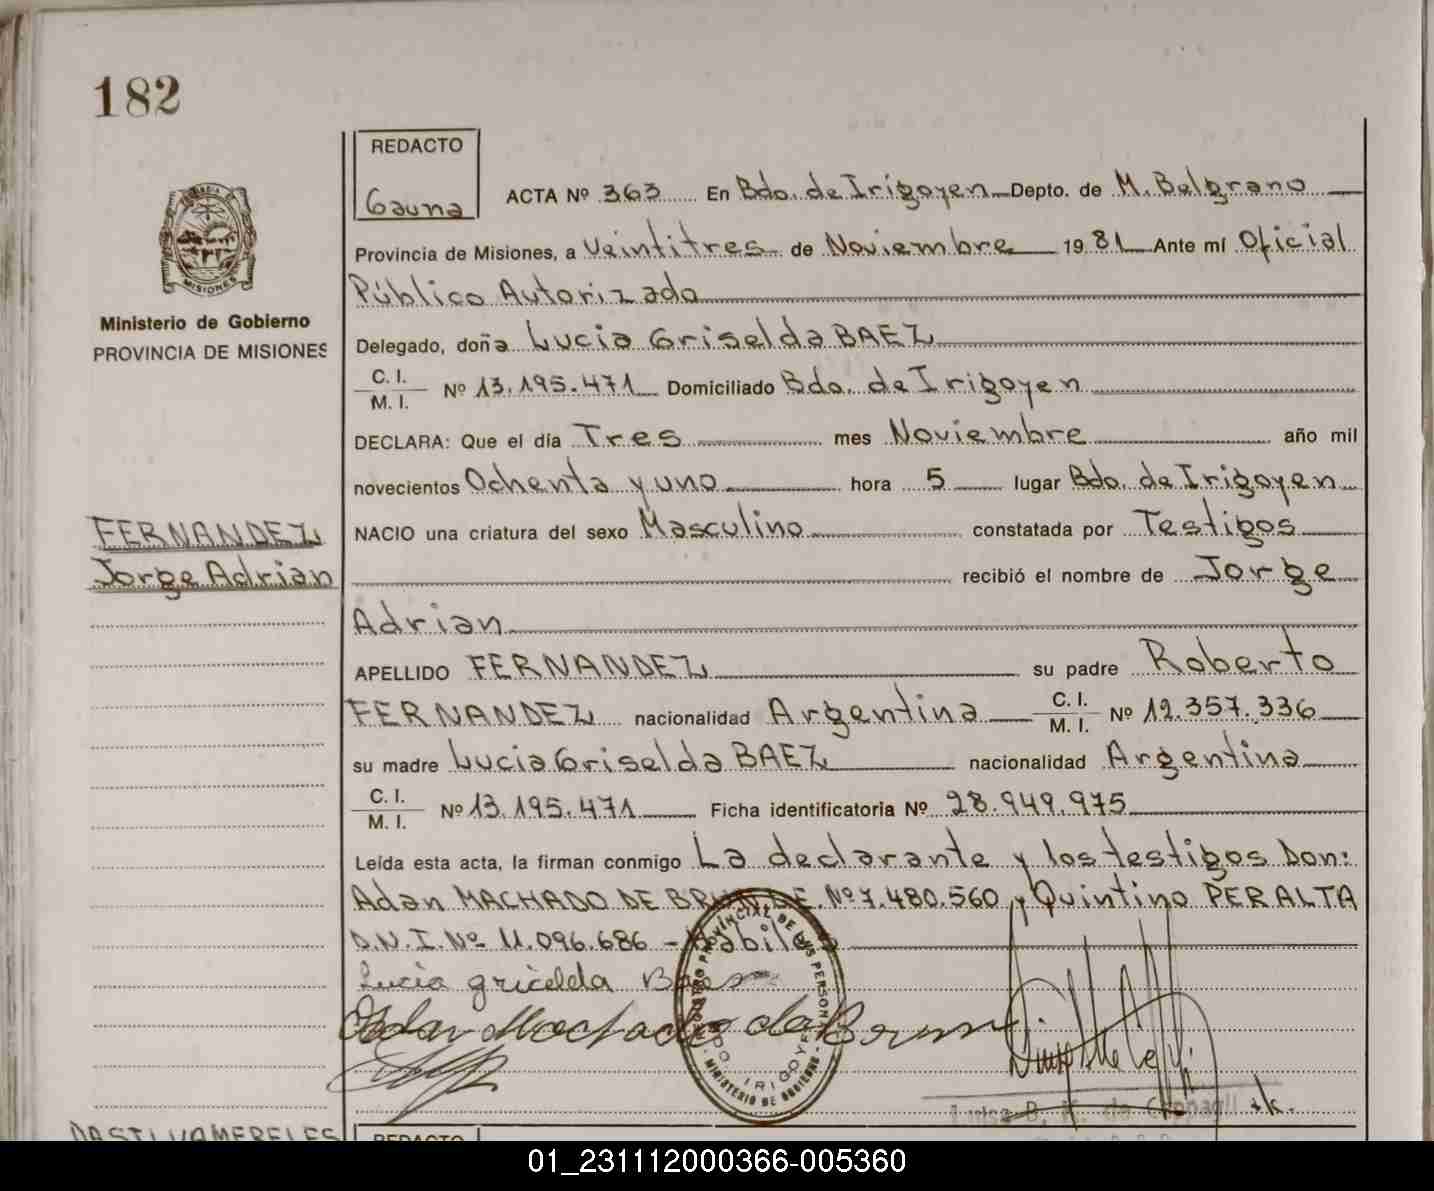 182
REDACTO
Gauna
ACTA Nº 363 En Bdo. de Irigoyen Depto. de M. Belgrano
Provincia de Misiones, a Veintitres de Noviembre 1981 Ante mí Oficial
Público Autorizado
MISIONES
Ministerio de Gobierno
PROVINCIA DE MISIONES
Delegado, doña Lucia Griselda BAEZ
C. I.
M. I. Nº 13.195.471 Domiciliado Bdo. de Irigoyen
DECLARA: Que el día Tres mes Noviembre año mil
novecientos Ochenta y uno hora 5 lugar Bdo. de Irigoyen
FERNANDEZ
Jorge Adrian
NACIO una criatura del sexo Masculino constatada por Testigos
recibió el nombre de Jorge
Adrian
APELLIDO FERNANDEZ su padre Roberto
FERNANDEZ nacionalidad Argentina C. I. M. I. Nº 12.357.336
su madre Lucia Griselda BAEZ nacionalidad Argentina
C. I.
M. I. Nº 13.195.471 Ficha identificatoria Nº 28.949.975
Leída esta acta, la firman conmigo La declarante y los testigos Don:
Adan MACHADO DE Nº 7.480.560 y Quintino PERALTA
D.N.I. Nº 11.096.686
Lucia gricelda
Adan Machado de
PROVINCIAL DE LAS PERSONAS
IRIGOYEN
MINISTERIO DE GOBIERNO
Luisa B. de
REDACTO
01_231112000366-005360